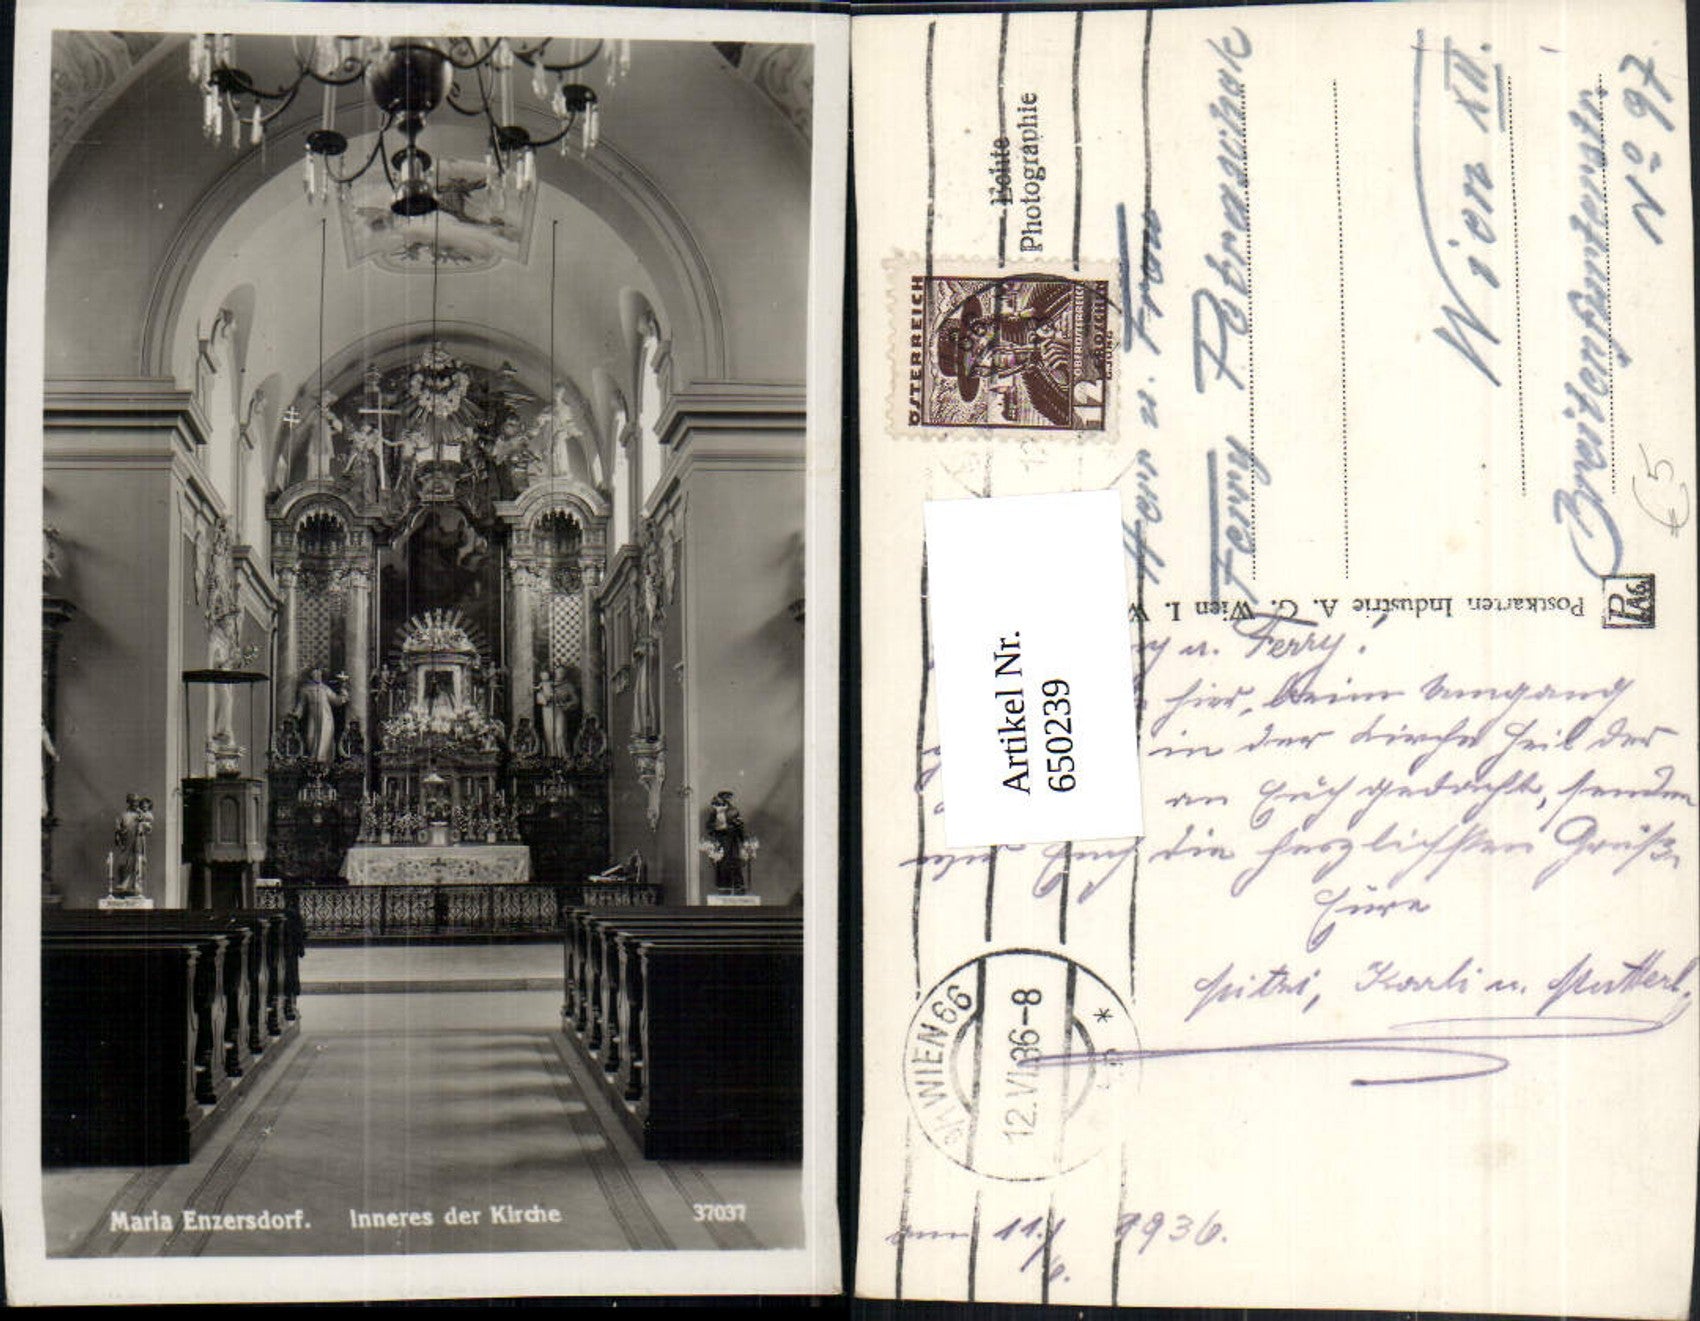 Maria Enzersdorf. Inneres der Kirche 37037
Echte
Photographie
ÖSTERREICH
OBERÖSTERREICH
12 GROSCHEN
Herr u. Frau
Ferry
Wien XII.
Breitenfurterstr.
No 97
€5
Postkarten Industrie A. G. Wien I.
PAG
Artikel Nr.
6502239
u. Ferry.
hier, beim Umgang
in der Kirche Heil der
an Euch gedacht, senden
wir Euch die herzlichsten Grüße,
Eure
Mitzi, Karli u. Mutterl,
WIEN 66
12.VI.36-8
am 11./6. 1936.